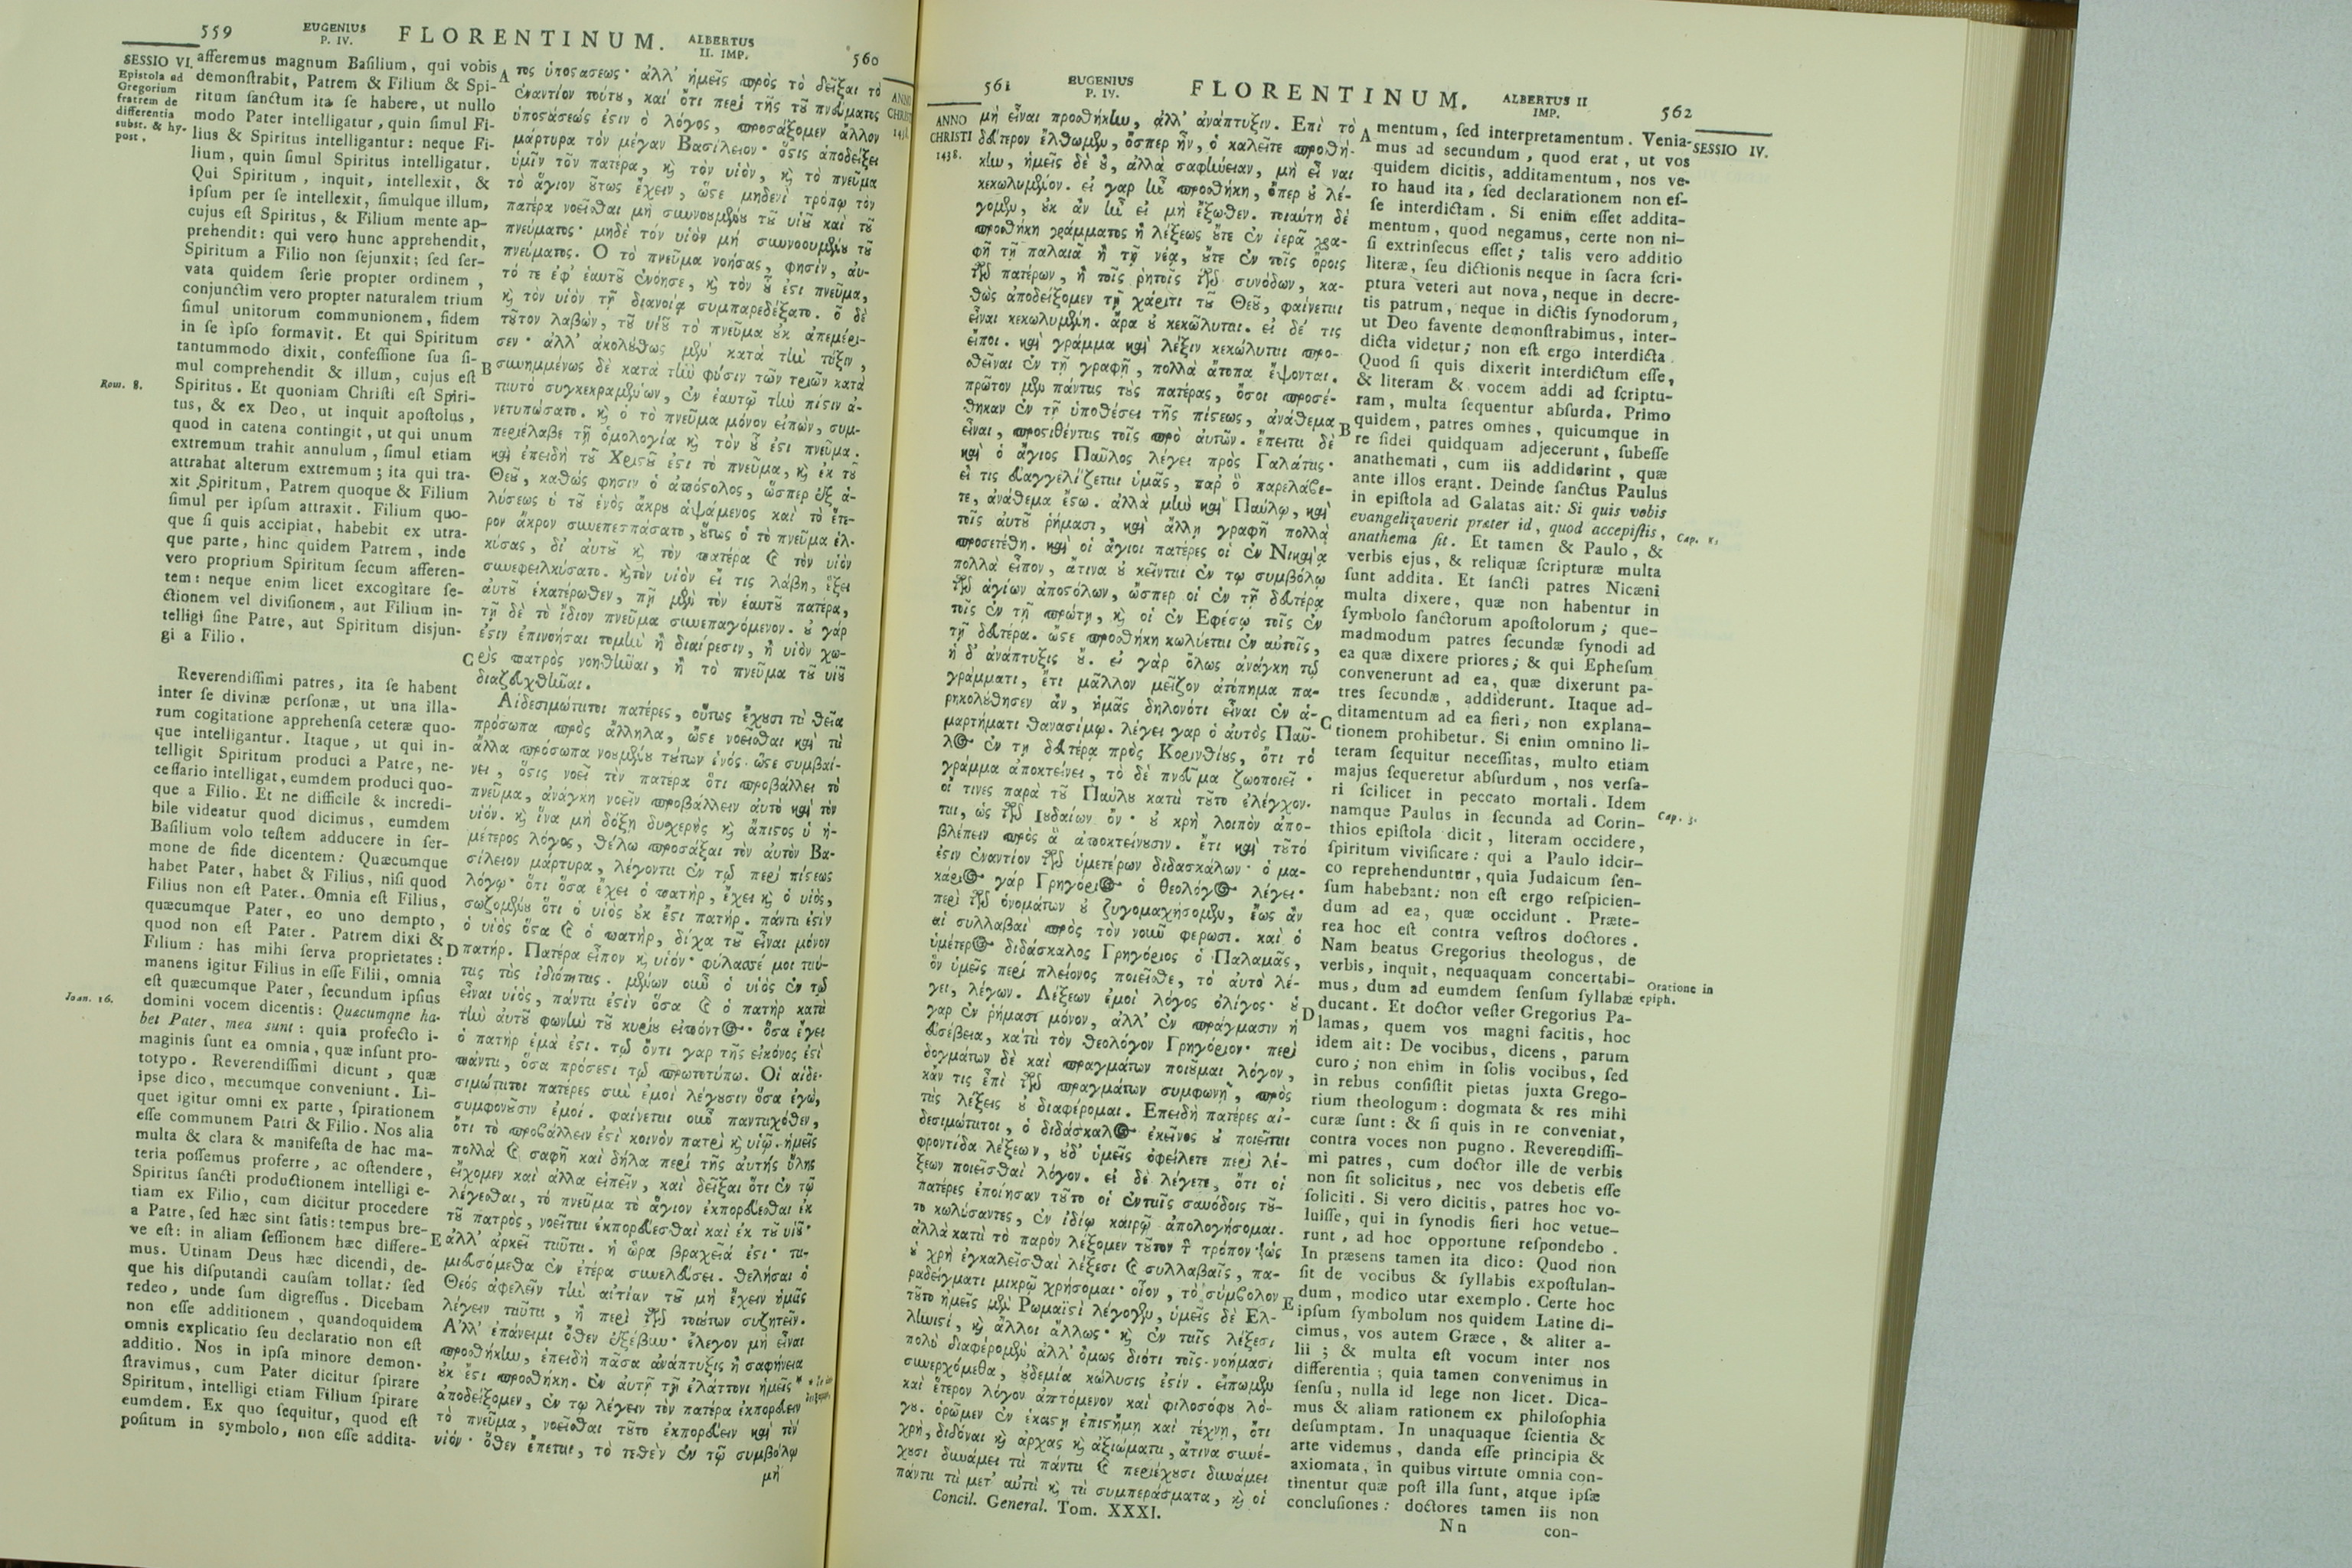 559
EUGENIUS
P. IV.
FLORENTINUM.
ALBERTUS
II. IMP.
560
SESSIO VI.
Epistola ad
Gregorium
fratrem de
differentia
subst. & hy-
post.
Rom. 8.
Joan. 16.
afferemus magnum Basilium, qui vobis
demonstrabit, Patrem & Filium & Spi-
ritum sanctum ita se habere, ut nullo
modo Pater intelligatur, quin simul Fi-
lius & Spiritus intelligantur: neque Fi-
lium, quin simul Spiritus intelligatur.
Qui Spiritum, inquit, intellexit, &
ipsum per se intellexit, simulque illum,
cujus est Spiritus, & Filium mente ap-
prehendit: qui vero hunc apprehendit,
Spiritum a Filio non sejunxit; sed ser-
vata quidem serie propter ordinem,
conjunctim vero propter naturalem trium
simul unitorum communionem, fidem
in se ipso formavit. Et qui Spiritum
tantummodo dixit, confessione sua si-
mul comprehendit & illum, cujus est
Spiritus. Et quoniam Christi est Spiri-
tus, & ex Deo, ut inquit apostolus,
quod in catena contingit, ut qui unum
extremum trahit annulum, simul etiam
attrahat alterum extremum; ita qui tra-
xit Spiritum, Patrem quoque & Filium
simul per ipsum attraxit. Filium quo-
que si quis accipiat, habebit ex utra-
que parte, hinc quidem Patrem, inde
vero proprium Spiritum secum afferen-
tem: neque enim licet excogitare se-
ctionem vel divisionem, aut Filium in-
telligi sine Patre, aut Spiritum disjun-
gi a Filio.
Reverendissimi patres, ita se habent
inter se divinæ personæ, ut una illa-
rum cogitatione apprehensa ceteræ quo-
que intelligantur. Itaque, ut qui in-
telligit Spiritum produci a Patre, ne-
cessario intelligat, eumdem produci quo-
que a Filio. Et ne difficile & incredi-
bile videatur quod dicimus, eumdem
Basilium volo testem adducere in ser-
mone de fide dicentem: Quæcumque
habet Pater, habet & Filius, nisi quod
Filius non est Pater. Omnia est Filius,
quæcumque Pater, eo uno dempto,
quod non est Pater. Patrem dixi &
Filium: has mihi serva proprietates:
manens igitur Filius in esse Filii, omnia
est quæcumque Pater, secundum ipsius
domini vocem dicentis: Quæcumque ha-
bet Pater, mea sunt: quia profecto i-
maginis sunt ea omnia, quæ insunt pro-
totypo. Reverendissimi dicunt, quæ
ipse dico, mecumque conveniunt. Li-
quet igitur omni ex parte, spirationem
esse communem Patri & Filio. Nos alia
multa & clara & manifesta de hac ma-
teria possemus proferre, ac ostendere,
Spiritus sancti productionem intelligi e-
tiam ex Filio, cum dicitur procedere
a Patre, sed hæc sint satis: tempus bre-
ve est: in aliam sessionem hæc differe-
mus. Utinam Deus hæc dicendi, de-
que his disputandi causam tollat: sed
redeo, unde sum digressus. Dicebam
non esse additionem, quandoquidem
omnis explicatio seu declaratio non est
additio. Nos in ipsa minore demon-
stravimus, cum Pater dicitur spirare
Spiritum, intelligi etiam Filium spirare
eumdem. Ex quo sequitur, quod est
positum in symbolo, non esse addita-
A
B
C
D
E
τος ὑποστάσεως· ἀλλ' ἡμεῖς πρὸς τὸ δεῖξαι τὸ
ἐναντίον τούτου, καὶ ὅτι περὶ τῆς τοῦ πνεύματος
ὑποστάσεώς ἐστιν ὁ λόγος, προσάξομεν ἄλλον
μάρτυρα τὸν μέγαν Βασίλειον· ὅστις ἀποδείξει
ὑμῖν τὸν πατέρα, καὶ τὸν υἱὸν, καὶ τὸ πνεῦμα
τὸ ἅγιον οὕτως ἔχειν, ὥστε μηδενὶ τρόπῳ τὸν
πατέρα νοεῖσθαι μὴ συννοουμένου τοῦ υἱοῦ καὶ τοῦ
πνεύματος· μηδὲ τὸν υἱὸν μὴ συννοουμένου τοῦ
πνεύματος. Ο τὸ πνεῦμα νοήσας, φησὶν, αὐ-
τό τε ἐφ' ἑαυτοῦ ἐνόησε, καὶ τὸν οὗ ἐστι πνεῦμα,
καὶ τὸν υἱὸν τῇ διανοίᾳ συμπαρεδέξατο. ὁ δὲ
τοῦτον λαβὼν, τοῦ υἱοῦ τὸ πνεῦμα οὐκ ἀπεμέρι-
σεν· ἀλλ' ἀκολούθως μὲν κατὰ τὴν τάξιν,
συνημμένως δὲ κατὰ τὴν φύσιν τῶν τριῶν κατὰ
ταυτὸ συγκεκραμένων, ἐν ἑαυτῷ τὴν πίστιν ἀ-
νετυπώσατο. καὶ ὁ τὸ πνεῦμα μόνον εἰπὼν, συμ-
περιέλαβε τῇ ὁμολογίᾳ καὶ τὸν οὗ ἐστι πνεῦμα.
καὶ ἐπειδὴ τοῦ Χριστοῦ ἐστι τὸ πνεῦμα, καὶ ἐκ τοῦ
Θεοῦ, καθώς φησιν ὁ ἀπόστολος, ὥσπερ ἐξ ἁ-
λύσεως ὁ τοῦ ἑνὸς ἄκρου ἁψάμενος καὶ τὸ ἕτε-
ρον ἄκρον συνεπεσπάσατο, οὕτως ὁ τὸ πνεῦμα ἑλ-
κύσας, δι' αὐτοῦ καὶ τὸν πατέρα καὶ τὸν υἱὸν
συνεφειλκύσατο. καὶ τὸν υἱὸν εἴ τις λάβη, ἕξει
αὐτοῦ ἑκατέρωθεν, πῇ μὲν τὸν ἑαυτοῦ πατέρα,
τῇ δὲ τὸ ἴδιον πνεῦμα συνεπαγόμενον. οὐ γάρ
ἐστιν ἐπινοῆσαι τομὴν ἢ διαίρεσιν, ἢ υἱὸν χω-
ρὶς πατρὸς νοηθῆναι, ἢ τὸ πνεῦμα τοῦ υἱοῦ
διαζευχθῆναι.
Αἰδεσιμώτατοι πατέρες, οὕτως ἔχουσι τὰ θεῖα
πρόσωπα πρὸς ἄλληλα, ὥστε νοεῖσθαι καὶ τὰ
ἄλλα πρόσωπα νοουμένου τούτων ἑνός· ὥστε συμβαί-
νει, ὅστις νοεῖ τὸν πατέρα ὅτι προβάλλει τὸ
πνεῦμα, ἀνάγκη νοεῖν προβάλλειν αὐτὸ καὶ τὸν
υἱόν. καὶ ἵνα μὴ δόξῃ δυσχερὴς καὶ ἄπιστος ὁ ἡ-
μέτερος λόγος, θέλω προσάξαι τὸν αὐτὸν Βα-
σίλειον μάρτυρα, λέγοντα ἐν τῷ περὶ πίστεως
λόγῳ· ὅτι ὅσα ἔχει ὁ πατὴρ, ἔχει καὶ ὁ υἱὸς,
σωζομένου ὅτι ὁ υἱὸς οὐκ ἔστι πατήρ. πάντα ἐστὶν
ὁ υἱὸς ὅσα καὶ ὁ πατὴρ, δίχα τοῦ εἶναι μόνον
πατήρ. Πατέρα εἶπον καὶ υἱόν· φύλασσέ μοι ταύ-
τας τὰς ἰδιότητας. μένων οὖν ὁ υἱὸς ἐν τῷ
εἶναι υἱὸς, πάντα ἐστὶν ὅσα καὶ ὁ πατὴρ κατὰ
τὴν αὐτοῦ φωνὴν τοῦ κυρίου εἰπόντος· ὅσα ἔχει
ὁ πατὴρ ἐμά ἐστι. τῷ ὄντι γὰρ τῆς εἰκόνος ἐστὶ
πάντα, ὅσα πρόσεστι τῷ πρωτοτύπῳ. Οἱ αἰδε-
σιμώτατοι πατέρες σὺν ἐμοὶ λέγουσιν ὅσα ἐγὼ,
συμφονοῦσιν ἐμοί. φαίνεται οὖν πανταχόθεν,
ὅτι τὸ προβάλλειν ἐστὶ κοινὸν πατρὶ καὶ υἱῷ. ἡμεῖς
πολλὰ καὶ σαφῆ καὶ δῆλα περὶ τῆς αὐτῆς ὕλης
εἴχομεν καὶ ἄλλα εἰπεῖν, καὶ δεῖξαι ὅτι ἐν τῷ
λέγεσθαι, τὸ πνεῦμα τὸ ἅγιον ἐκπορεύεσθαι ἐκ
τοῦ πατρὸς, νοεῖται ἐκπορεύεσθαι καὶ ἐκ τοῦ υἱοῦ·
ἀλλ' ἀρκεῖ ταῦτα. ἡ ὥρα βραχεῖά ἐστι· τα-
μιευσόμεθα ἐν ἑτέρᾳ συνελεύσει. θελήσαι ὁ
Θεὸς ἀφελεῖν τὴν αἰτίαν τοῦ μὴ ἔχειν ἡμᾶς
λέγειν ταῦτα, ἢ περὶ τῶν τοιούτων συζητεῖν.
Ἀλλ' ἐπάνειμι ὅθεν ἐξέβην· ἔλεγον μὴ εἶναι
προσθήκην, ἐπειδὴ πᾶσα ἀνάπτυξις ἢ σαφήνεια
οὐκ ἔστι προσθήκη. ἐν αὐτῇ τῇ ἐλάττονι ἡμεῖς *
ἀποδείξομεν, ἐν τῷ λέγειν τὸν πατέρα ἐκπορεύειν
τὸ πνεῦμα, νοεῖσθαι τοῦτο ἐκπορεύειν καὶ τὸν
υἱόν· ὅθεν ἕπεται, τὸ τεθὲν ἐν τῷ συμβόλῳ
μὴ
ANNO
CHRISTI
561
EUGENIUS
P. IV.
FLORENTINUM.
ALBERTUS II
IMP.
562
ANNO
CHRISTI
1438.
μὴ εἶναι προσθήκην, ἀλλ' ἀνάπτυξιν. Επὶ τὸ
δεύτερον ἔλθωμεν, ὅσπερ ἦν, ὃ καλεῖτε προσθή-
κην, ἡμεῖς δὲ οὐ, ἀλλὰ σαφήνειαν, μὴ εἶναι
κεκωλυμένον. εἰ γὰρ ἦν προσθήκη, ὅπερ οὐ λέ-
γομεν, οὐκ ἂν ἦν εἰ μὴ ἔξωθεν. τοιαύτη δὲ
προσθήκη γράμματος ἢ λέξεως οὔτε ἐν ἱερᾷ γρα-
φῇ τῇ παλαιᾷ ἢ τῇ νέᾳ, οὔτε ἐν τοῖς ὅροις
τῶν πατέρων, ἢ τοῖς ῥητοῖς τῶν συνόδων, κα-
θὼς ἀποδείξομεν τῇ χάριτι τοῦ Θεοῦ, φαίνεται
εἶναι κεκωλυμένη. ἄρα οὐ κεκώλυται. εἰ δέ τις
εἴποι. καὶ γράμμα καὶ λέξιν κεκώλυται προ-
σθεῖναι ἐν τῇ γραφῇ, πολλὰ ἄτοπα ἕψονται.
πρῶτον μὲν πάντας τοὺς πατέρας, ὅσοι προσέ-
θηκαν ἐν τῇ ὑποθέσει τῆς πίστεως, ἀνάθεμα
εἶναι, προστιθέντας τοῖς πρὸ αὐτῶν. ἔπειτα δὲ
καὶ ὁ ἅγιος Παῦλος λέγει πρὸς Γαλάτας·
εἴ τις εὐαγγελίζεται ὑμᾶς, παρ' ὃ παρελάβε-
τε, ἀνάθεμα ἔστω. ἀλλὰ μὴν καὶ Παύλῳ, καὶ
τοῖς αὐτοῦ ῥήμασι, καὶ ἄλλῃ γραφῇ πολλὰ
προσετέθη. καὶ οἱ ἅγιοι πατέρες οἱ ἐν Νικαίᾳ
πολλὰ εἶπον, ἅτινα οὐ κεῖνται ἐν τῳ συμβόλῳ
τῶν ἁγίων ἀποστόλων, ὥσπερ οἱ ἐν τῇ δευτέρᾳ
τοῖς ἐν τῇ πρώτῃ, καὶ οἱ ἐν Εφέσῳ τοῖς ἐν
τῇ δευτέρᾳ. ὥστε προσθήκη κωλύεται ἐν αὐτοῖς,
ἡ δ' ἀνάπτυξις οὔ. εἰ γὰρ ὅλως ἀνάγκη τῷ
γράμματι, ἔτι μᾶλλον μεῖζον ἀτόπημα πα-
ρηκολούθησεν ἂν, ἡμᾶς δηλονότι εἶναι ἐν ἁ-
μαρτήματι θανασίμῳ. λέγει γαρ ὁ αὐτὸς Παῦ-
λος ἐν τῃ δευτέρᾳ πρὸς Κορινθίους, ὅτι τὸ
γράμμα ἀποκτείνει, τὸ δὲ πνεῦμα ζωοποιεῖ·
οἵ τινες παρὰ τοῦ Παύλου κατὰ τοῦτο ἐλέγχον-
ται, ὡς τῶν Ιουδαίων ὄν· οὐ χρὴ λοιπὸν ἀπο-
βλέπειν πρὸς ἃ ἀποκτείνουσιν. ἔτι καὶ τοῦτό
ἐστιν ἐναντίον τῶν ὑμετέρων διδασκάλων· ὁ μα-
κάριος γάρ Γρηγόριος ὁ θεολόγος λέγει·
περὶ τῶν ὀνομάτων οὐ ζυγομαχήσομεν, ἕως ἂν
αἱ συλλαβαὶ πρὸς τὸν νοῦν φερωσι. καὶ ὁ
ὑμέτερος διδάσκαλος Γρηγόριος ὁ Παλαμᾶς,
ὃν ὑμεῖς περὶ πλείονος ποιεῖσθε, τὸ αὐτὸ λέ-
γει, λέγων. Λέξεων ἐμοὶ λόγος ὀλίγος· οὐ
γαρ ἐν ῥήμασι μόνον, ἀλλ' ἐν πράγμασιν ἡ
εὐσέβεια, κατὰ τὸν θεολόγον Γρηγόριον· περὶ
δογμάτων δὲ καὶ πραγμάτων ποιοῦμαι λόγον,
κἄν τις ἐπὶ τῶν πραγμάτων συμφωνῇ, πρὸς
τὰς λέξεις οὐ διαφέρομαι. Επειδὴ πατέρες αἰ-
δεσιμώτατοι, ὁ διδάσκαλος ἐκεῖνος οὐ ποιεῖται
φροντίδα λέξεων, οὐδ' ὑμεῖς ὀφείλετε περὶ λέ-
ξεων ποιεῖσθαι λόγον. εἰ δὲ λέγετε, ὅτι οἱ
πατέρες ἐποίησαν τοῦτο οἱ ἐνταῖς συνόδοις τοῦ-
το κωλύσαντες, ἐν ἰδίῳ καιρῷ ἀπολογήσομαι.
ἀλλὰ κατὰ τὸ παρὸν λέξομεν τοῦτον τὸν τρόπον· ὡς
οὐ χρὴ ἐγκαλεῖσθαι λέξεσι καὶ συλλαβαῖς, πα-
ραδείγματι μικρῷ χρήσομαι· οἷον, τὸ σύμβολον
τοῦτο ἡμεῖς μὲν Ρωμαϊστὶ λέγομεν, ὑμεῖς δὲ Ελ-
ληνιστὶ, καὶ ἄλλοι ἄλλως· καὶ ἐν ταῖς λέξεσι
πολὺ διαφέρομεν ἀλλ' ὅμως διότι τοῖς νοήμασι
συνερχόμεθα, οὐδεμία κώλυσις ἐστίν. εἴπωμεν
καὶ ἕτερον λόγον ἁπτόμενον καὶ φιλοσόφου λό-
γου. ὁρῶμεν ἐν ἑκάστῃ ἐπιστήμῃ καὶ τέχνῃ, ὅτι
χρὴ, διδόναι καὶ ἀρχας καὶ ἀξιώματα, ἅτινα συνέ-
χουσι δυνάμει τὰ πάντα καὶ περιέχουσι δυνάμει
πάντα τὰ μετ' αὐτὰ καὶ τὰ συμπεράσματα, καὶ οἱ
Concil. General. Tom. XXXI.
A
B
C
D
E
mentum, sed interpretamentum. Venia-
mus ad secundum, quod erat, ut vos
quidem dicitis, additamentum, nos ve-
ro haud ita, sed declarationem non es-
se interdictam. Si enim esset addita-
mentum, quod negamus, certe non ni-
si extrinsecus esset; talis vero additio
literæ, seu dictionis neque in sacra scri-
ptura veteri aut nova, neque in decre-
tis patrum, neque in dictis synodorum,
ut Deo favente demonstrabimus, inter-
dicta videtur; non est ergo interdicta.
Quod si quis dixerit interdictum esse,
& literam & vocem addi ad scriptu-
ram, multa sequentur absurda. Primo
quidem, patres omnes, quicumque in
re fidei quidquam adjecerunt, subesse
anathemati, cum iis addiderint, quæ
ante illos erant. Deinde sanctus Paulus
in epistola ad Galatas ait: Si quis vobis
evangelizaverit præter id, quod accepistis,
anathema sit. Et tamen & Paulo, &
verbis ejus, & reliquæ scripturæ multa
sunt addita. Et sancti patres Nicæni
multa dixere, quæ non habentur in
symbolo sanctorum apostolorum; que-
madmodum patres secundæ synodi ad
ea quæ dixere priores; & qui Ephesum
convenerunt ad ea, quæ dixerunt pa-
tres secundæ, addiderunt. Itaque ad-
ditamentum ad ea fieri, non explana-
tionem prohibetur. Si enim omnino li-
teram sequitur necessitas, multo etiam
majus sequeretur absurdum, nos versa-
ri scilicet in peccato mortali. Idem
namque Paulus in secunda ad Corin-
thios epistola dicit, literam occidere,
spiritum vivificare: qui a Paulo idcir-
co reprehenduntur, quia Judaicum sen-
sum habebant: non est ergo respicien-
dum ad ea, quæ occidunt. Præte-
rea hoc est contra vestros doctores.
Nam beatus Gregorius theologus, de
verbis, inquit, nequaquam concertabi-
mus, dum ad eumdem sensum syllabæ
ducant. Et doctor vester Gregorius Pa-
lamas, quem vos magni facitis, hoc
idem ait: De vocibus, dicens, parum
curo; non enim in solis vocibus, sed
in rebus consistit pietas juxta Grego-
rium theologum: dogmata & res mihi
curæ sunt: & si quis in re conveniat,
contra voces non pugno. Reverendissi-
mi patres, cum doctor ille de verbis
non sit solicitus, nec vos debetis esse
soliciti. Si vero dicitis, patres hoc vo-
luisse, qui in synodis fieri hoc vetue-
runt, ad hoc opportune respondebo.
In præsens tamen ita dico: Quod non
sit de vocibus & syllabis expostulan-
dum, modico utar exemplo. Certe hoc
ipsum symbolum nos quidem Latine di-
cimus, vos autem Græce, & aliter a-
lii; & multa est vocum inter nos
differentia; quia tamen convenimus in
sensu, nulla id lege non licet. Dica-
mus & aliam rationem ex philosophia
desumptam. In unaquaque scientia &
arte videmus, danda esse principia &
axiomata, in quibus virtute omnia con-
tinentur quæ post illa sunt, atque ipsæ
conclusiones: doctores tamen iis non
Nn
con-
SESSIO IV.
Cap. 1.
Cap. 3.
Oratione in
epiph.